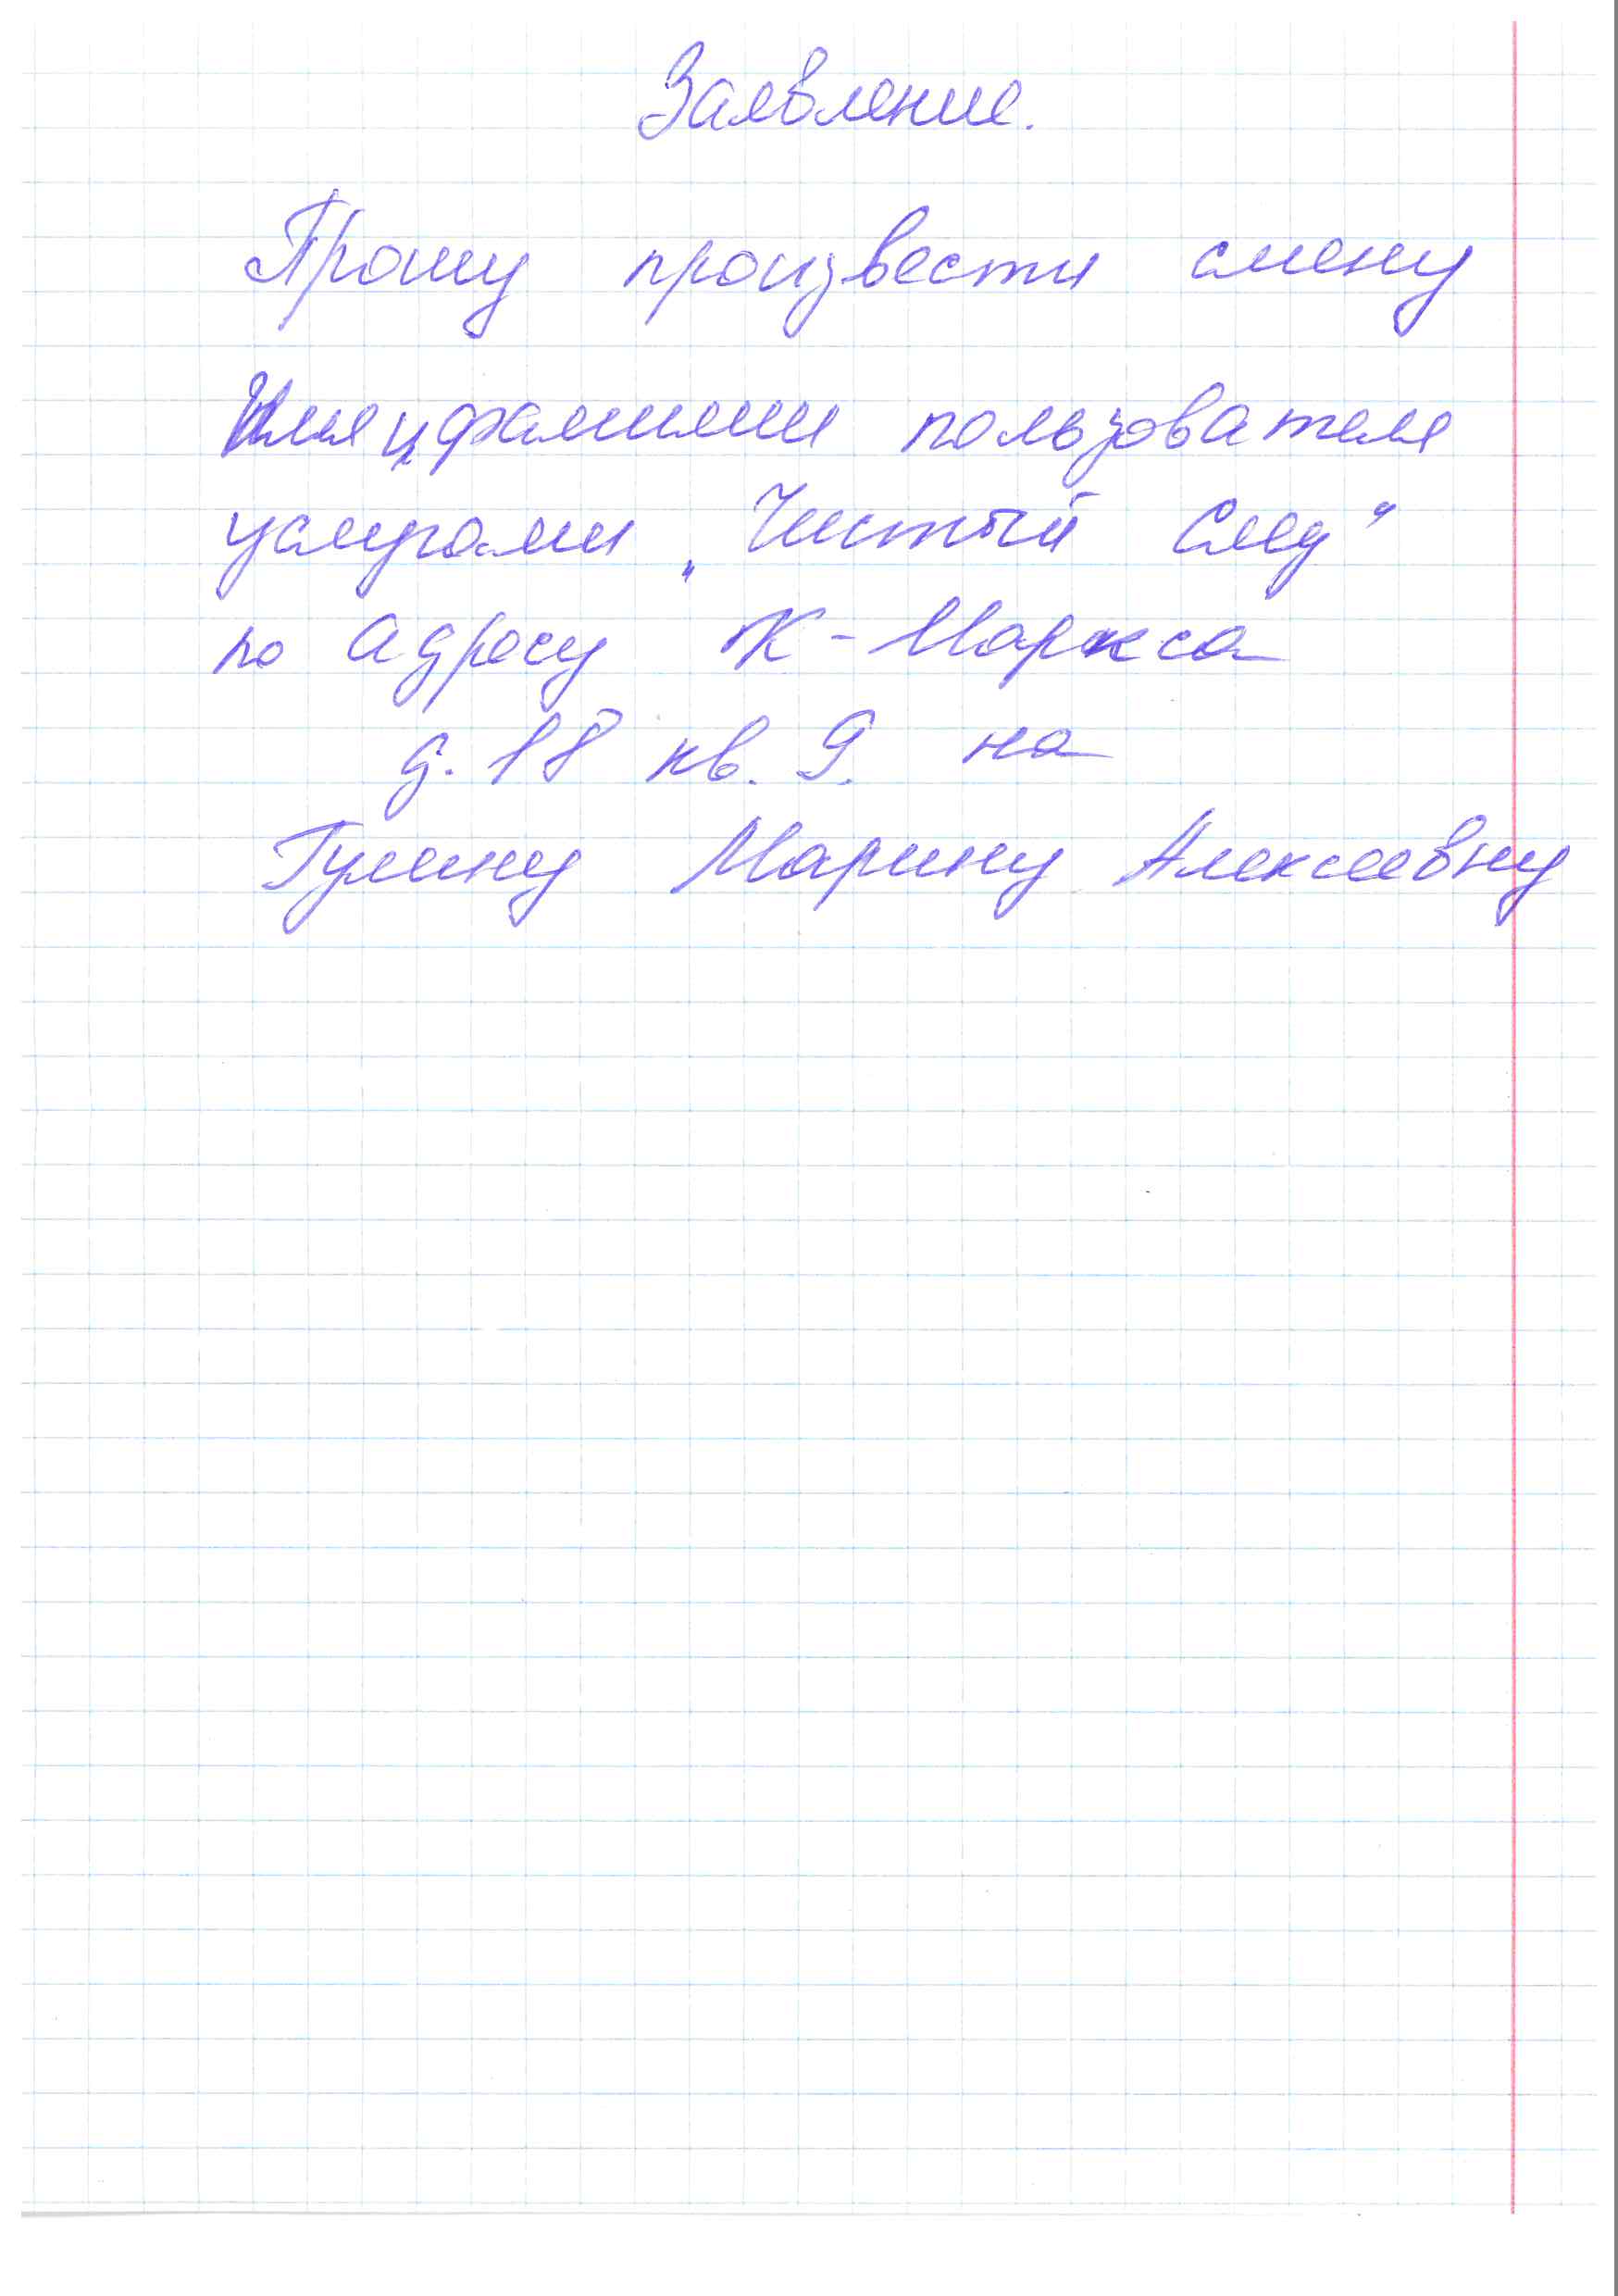 Заявление.
Прошу произвести смену
Имя и фамилии пользователя
услугами „Чистый След"
по адресу К-Маркса
д. 18 кв. 9. на
Гулину Марину Алексеевну